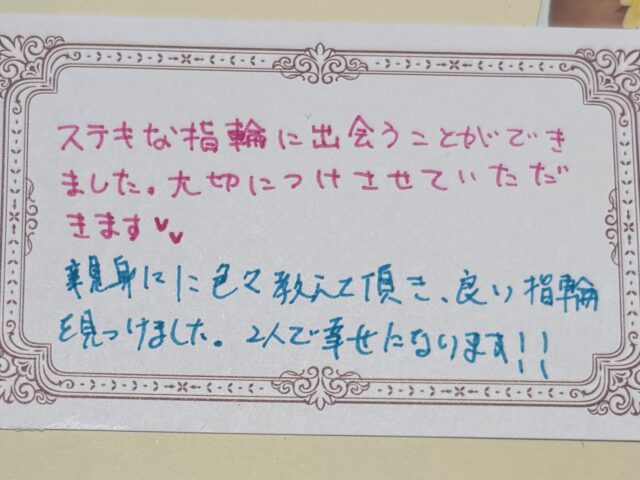 ステキな指輪に出会うことができ
ました。大切につけさせていただ
きます♥♥
親身に色々教えて頂き、良い指輪
を見つけました。2人で幸せになります!!